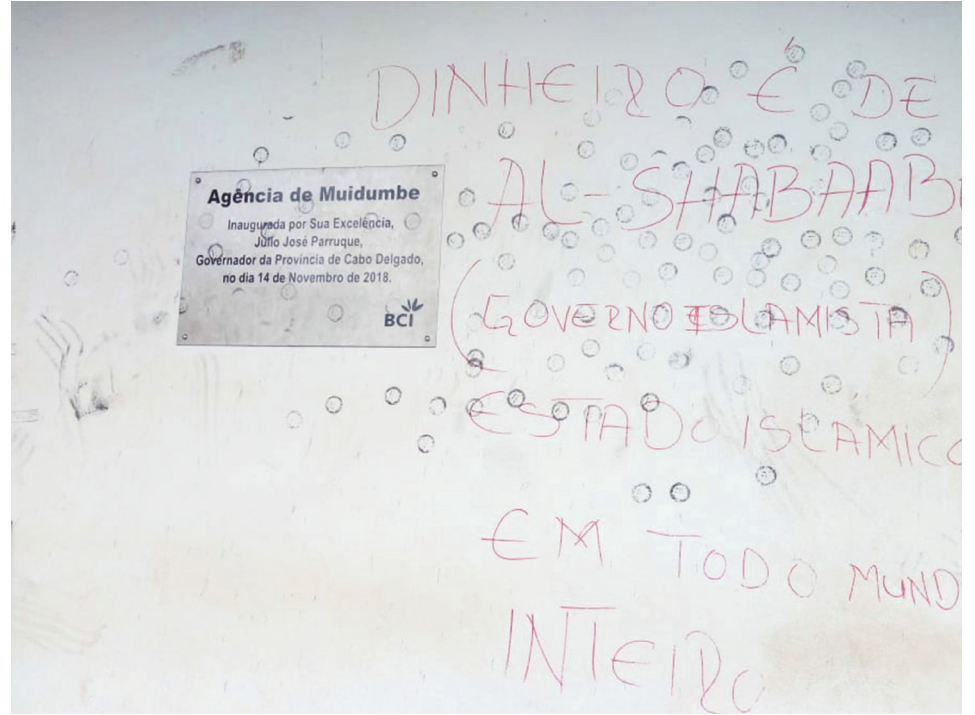 Agência de Muidumbe
Inaugurada por Sua Excelência,
Júlio José Parruque,
Governador da Província de Cabo Delgado,
no dia 14 de Novembro de 2018.
BCI
DINHEIRO É DE
AL-SHABAAB
(GOVERNO ISLAMISTA)
ESTADO ISLAMICO
EM TODO MUND
INTEIRO